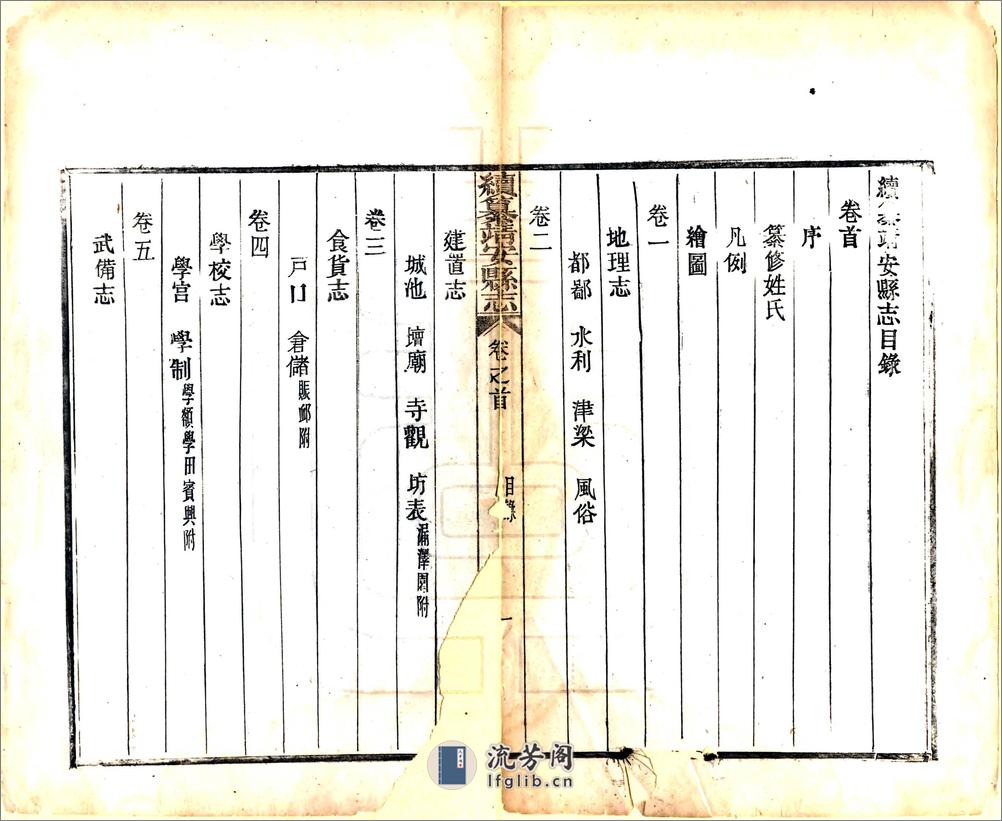 續纂靖安縣志目錄
卷首
序
纂修姓氏
凡例
繪圖
卷一
地理志
都鄙 水利 津梁 風俗
卷二
續纂靖安縣志 卷之首 目錄 一
建置志
城池 壇廟 寺觀 坊表漏澤園附
卷三
食貨志
戶口 倉儲賑䘏附
卷四
學校志
學宮 學制學額學田賓興附
卷五
武備志
流芳阁
lfglib.cn